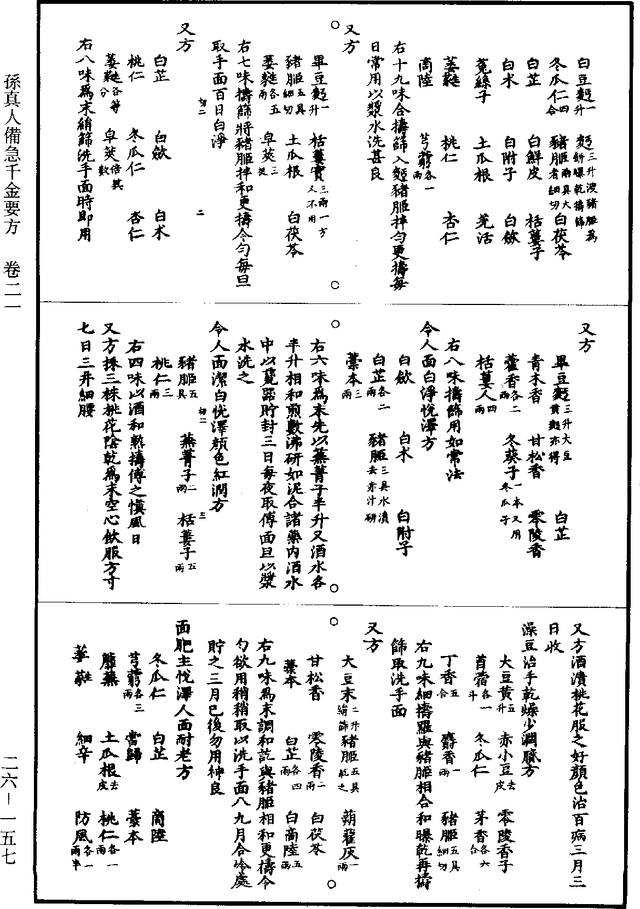 白豆麪一升 麪三升溲豬胰為餅曝乾擣篩
冬瓜仁四合 豬胰兩具大者細切 白茯苓
白芷 白鮮皮 栝蔞子
白朮 白附子 白歛
菟絲子 土瓜根 芜活
蔞蕤 桃仁 杏仁
商陸 芎藭各一兩
右十九味合擣篩入麪豬胰拌勻更擣每
日常用以漿水洗甚良
又方
畢豆麪一升 栝蔞實三兩一方人不用
豬胰五具細切 土瓜根 白茯苓
蔞蕤各五兩 皁莢三挺
右七味擣篩將豬胰拌和更擣令勻每旦
取手面百日白淨
又方
白芷 白歛 白朮
桃仁 冬瓜仁 杏仁
蔞蕤各等分 皁莢倍其數
右八味爲末綃篩洗手面時即用
又方
畢豆麪三升大豆黃麪亦得 白芷
青木香 甘松香 零陵香
藿香各二兩 冬葵子一本又用冬瓜子
栝蔞人四兩
右八味擣篩用如常法
令人面白淨悅澤方
白歛 白朮 白附子
白芷各二兩 豬胰三具水漬去赤汁研
藁本三兩
右六味爲末先以蕪菁子半升又酒水各
半升相和煎數沸研如泥合諸藥內酒水
中以甆器貯封三日每夜取傅面旦以漿
水洗之
令人面潔白悅澤顏色紅潤方
豬胰五具 蕪菁子二兩 栝蔞子五兩
桃仁三兩
右四味以酒和熟擣傅之慎風日
又方採三株桃花陰乾爲末空心飲服方寸
七日三并細腰
又方酒漬桃花服之好顏色治百病三月三
日收
澡豆治手乾燥少潤膩方
大豆黃五升 赤小豆去皮 零陵香子
苜蓿各一斗 冬瓜仁 茅香各六合
丁香五合 麝香一兩 豬胰五具細切
右九味細擣羅與豬胰相合和曝乾再擣
篩取洗手面
又方
大豆末二升絹篩 豬胰五具乾之 蒴藋灰一兩
甘松香 零陵香二兩 白茯苓
藁本 白芷各四兩 白商陸五兩
右九味爲末調和訖與豬胰相和更擣令
勻欲用稍稍取以洗手面八九月合冷處
貯之三月已後勿用神良
面肥主悅澤人面耐老方
冬瓜仁 白芷 商陸
芎藭各三兩 當歸 藁本
蘼蕪 土瓜根去皮 桃仁各一兩
葳蕤 細辛 防風各一兩半
孫真人備急千金要方 卷二一
二六—一五七